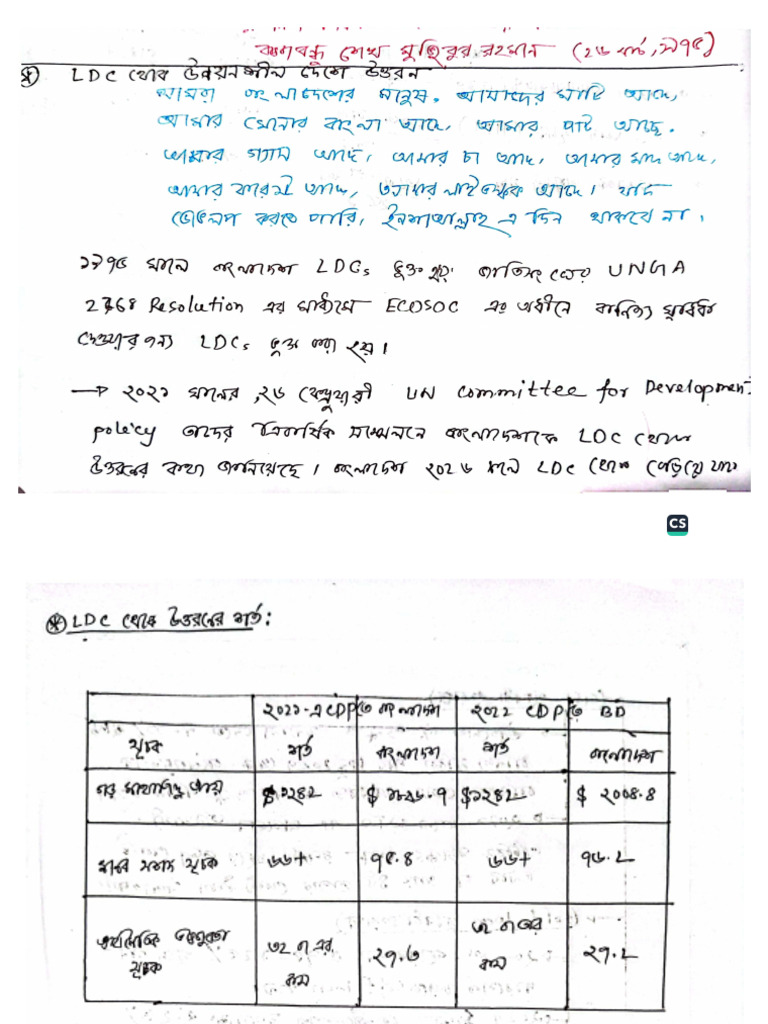 বঙ্গবন্ধু শেখ মুজিবুর রহমান (২৬ মার্চ, ১৯৭৫)
LDC থেকে উন্নয়নশীল দেশে উত্তরন
আমরা বাংলাদেশের মানুষ। আমাদের মাটি আছে,
আমার সোনার বাংলা আছে, আমার পাট আছে।
আমার গ্যাস আছে, আমার চা আছে, আমার মাছ আছে,
আমার ফরেস্ট আছে, আমার লাইভস্টক আছে। যদি
ডেভেলপ করতে পারি, ইনশাআল্লাহ এ দিন থাকবে না।
১৯৭৫ সালে বাংলাদেশ LDCs ভুক্ত হয়। জাতিসংঘের UNGA
2768 Resolution এর মাধ্যমে ECOSOC এর অধীনে বানিজ্য সুবিধা
দেওয়ার জন্য LDCs ভুক্ত করা হয়।
→ ২০২১ সালের ২৬ ফেব্রুয়ারী UN Committee for Development
policy তাদের ত্রিবার্ষিক সম্মেলনে বাংলাদেশকে LDC থেকে
উত্তরনের কথা জানিয়েছে। বাংলাদেশ ২০২৬ সালে LDC থেকে বেড়িয়ে যাবে
CS
LDC থেকে উত্তরনের শর্ত:
২০২১-এ CDPতে বাংলাদেশ ২০২২ CDPতে BD
সূচক শর্ত বাংলাদেশ শর্ত বাংলাদেশ
মাথাপিছু আয় $১২৪২ $১৮২৬.৭ $১২৪২ $ ২০০৪.৪
মানব সম্পদ সূচক ৬৬+ ৭৫.৪ ৬৬+ ৭৬.২
অর্থনৈতিক ভঙ্গুরতা ৩২ বা এর ২৭.৩ ৩২ বা তার ২৭.২
সূচক কম কম